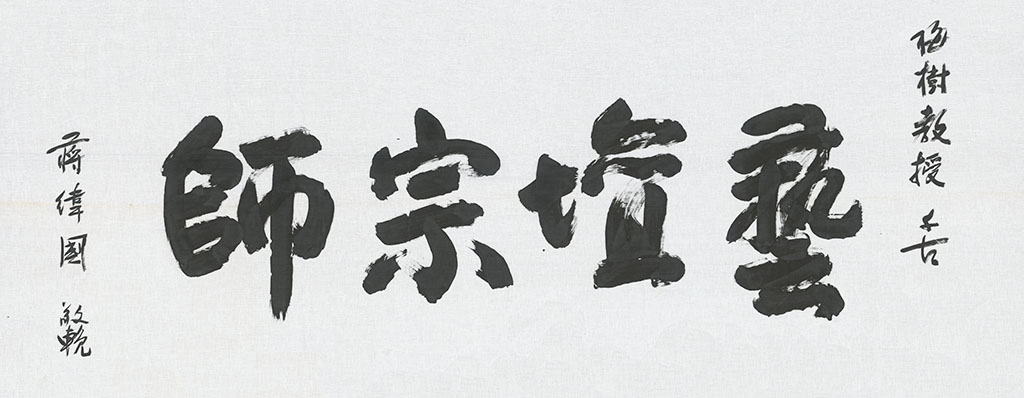 梅樹教授 千古
藝壇宗師
蔣緯國 敬輓